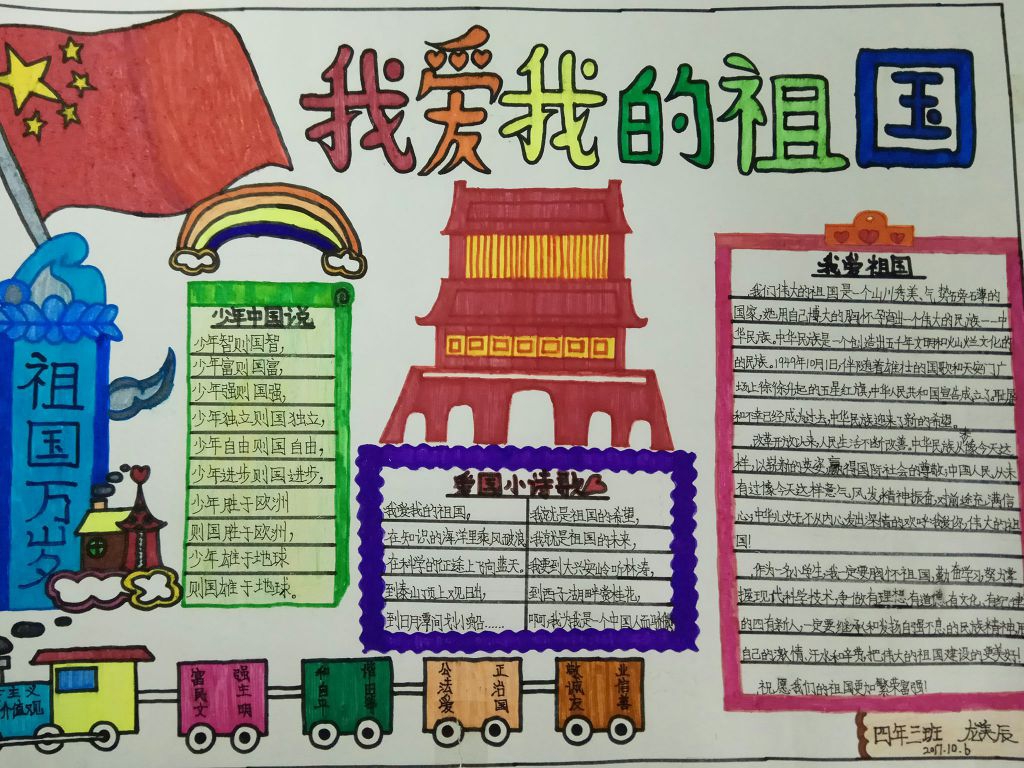 我爱我的祖国
祖国万岁
少年中国说
少年智则国智，
少年富则国富，
少年强则国强，
少年独立则国独立，
少年自由则国自由，
少年进步则国进步，
少年胜于欧洲
则国胜于欧洲，
少年雄于地球
则国雄于地球。
爱国小诗歌
我爱我的祖国，
在知识的海洋里乘风破浪
在科学的征途上飞向蓝天。
到泰山顶上观日出，
到日月潭间划小船……
我就是祖国的希望，
我就是祖国的未来，
我要到大兴安岭听林涛，
到西子湖畔赏桂花，
啊，我为我是一个中国人而骄傲
我爱祖国
我们伟大的祖国是一个山川秀美、气势磅礴的
国家，她用自己博大的胸怀孕育出一个伟大的民族——中
华民族。中华民族是一个创造出五千年文明和灿烂文化的
的民族。1949年10月1日，伴随着雄壮的国歌和天安门广
场上徐徐升起的五星红旗，中华人民共和国宣告成立了，耻辱
和不幸已经成为过去，中华民族迎来了新的希望。
改革开放以来，人民生活不断改善，中华民族从像今天这
样，以崭新的姿容，赢得国际社会的尊敬；中国人民从未
有过像今天这样意气风发，精神振奋，对前途充满信
心；中华儿女无不从内心发出深情的欢呼：我爱你，伟大的祖
国！
作为一名小学生，我一定要胸怀祖国，勤奋学习，努力掌
握现代科学技术，争做有理想、有道德、有文化、有纪律
的四有新人，一定要继承和发扬自强不息的民族精神，用
自己的激情、汗水和辛劳，把伟大的祖国建设的更美好！
祝愿我们的祖国更加繁荣富强！
主义
价值观
富强
民主
文明
和谐
自由
平
公正
法治
爱国
敬业
诚信
友善
四年三班 龙美辰
2017.10.6